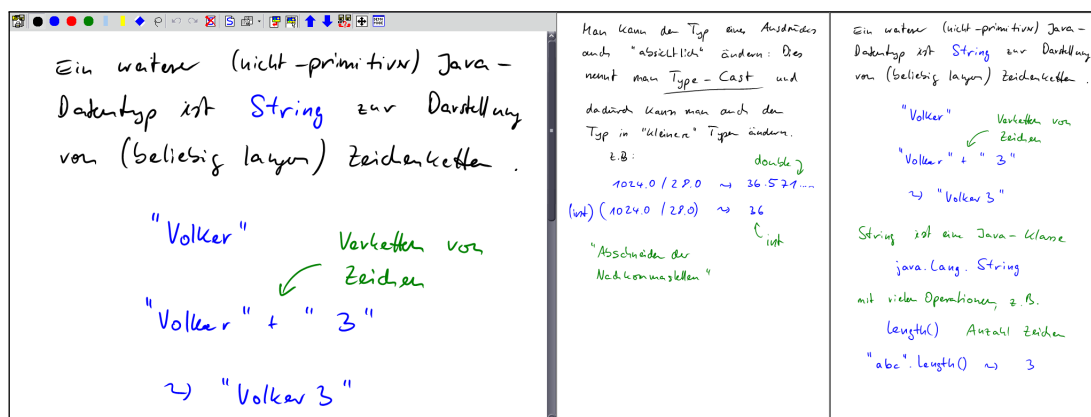 Ein weiterer (nicht-primitiver) Java-
Datentyp ist String zur Darstellung
von (beliebig langen) Zeichenketten.
"Volker"
Verketten von
Zeichen
"Volker" + " 3"
↝ "Volker 3"
Man kann den Typ eines Ausdruckes
auch "absichtlich" ändern: Dies
nennt man Type-Cast und
dadurch kann man auch den
Typ in "kleinere" Typen ändern.
z.B:
double
1024.0 / 28.0 ↝ 36.571....
(int) (1024.0 / 28.0) ↝ 36
int
"Abschneiden der
Nachkommastellen"
Ein weiterer (nicht-primitiver) Java-
Datentyp ist String zur Darstellung
von (beliebig langen) Zeichenketten.
"Volker"
Verketten von
Zeichen
"Volker" + " 3"
↝ "Volker 3"
String ist eine Java-Klasse
java.lang.String
mit vielen Operationen, z.B.
length() Anzahl Zeichen
"abc".length() ↝ 3